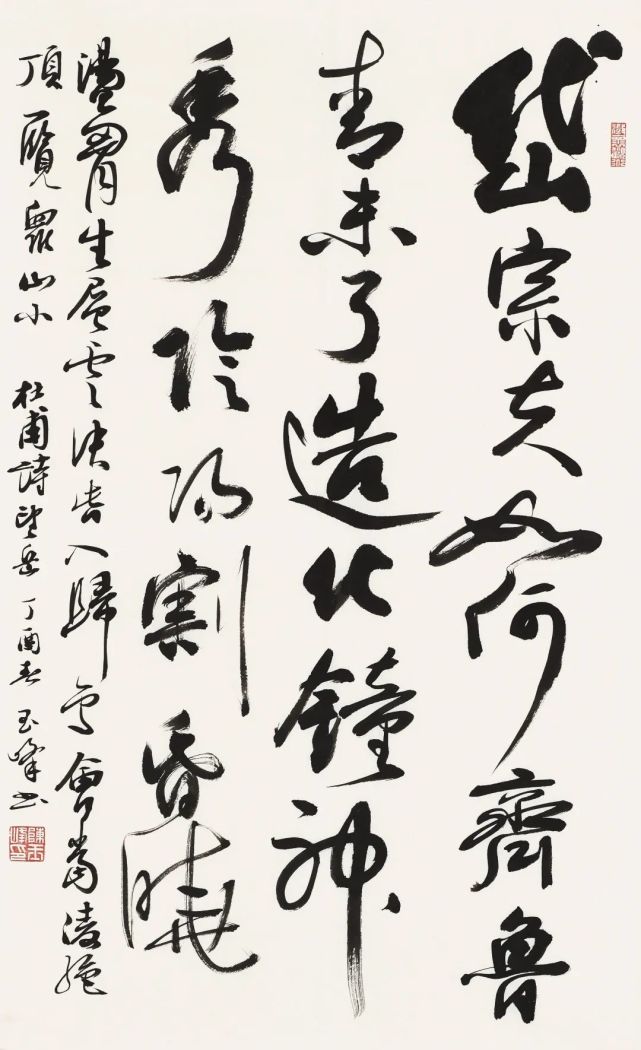 岱宗夫如何齊魯
青未了造化鐘神
秀陰陽割昏曉
盪胷生層雲決眥入歸鳥會當淩絕
頂覽眾山小 杜甫詩望岳 丁酉春 玉峰書
陳玉峰印